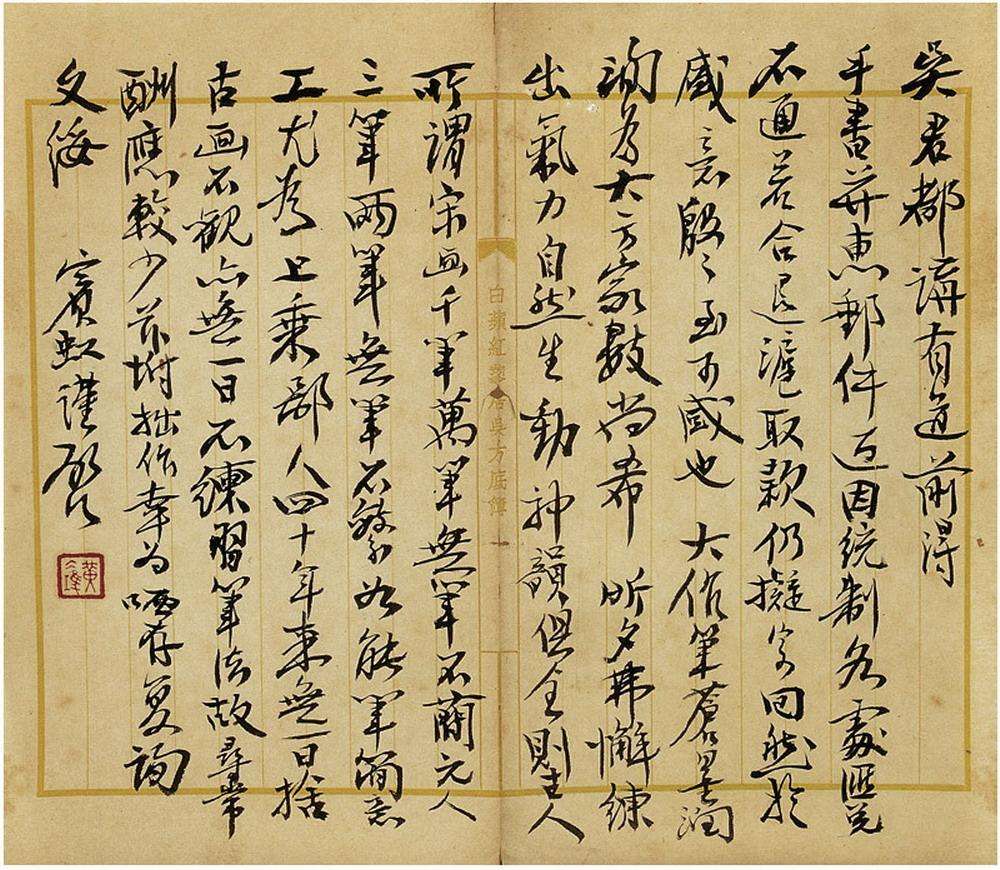 吳君都講有道前得
手書并惠郵件近因統制各處匯兌
不通若合退滬取款仍擬寄回然於
盛意殷〻至可感也 大作筆蒼墨潤
洵為大方家數尚希 昕夕弗懈練
出氣力自然生動神韻俱全則人
所謂宋画千筆萬筆無筆不簡元人
三筆兩筆無筆不繁如能筆簡意
工尤為上乘鄙人四十年來無一日捨
古画不觀亦無一日不練習筆法故尋常
酬應較少茲坿拙作幸為哂存复詢
文綏 賓虹謹啟